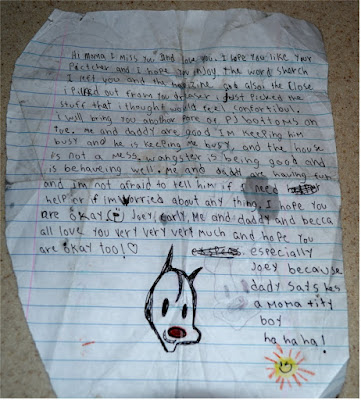 Hi Moma I miss you and love you. I hope you like your
Pictcher and I hope you enjoy the word sherch
I Met you and the magizine. and also the Close
i Picked out from you drawer i Just picked the
stuff that i thought would feel confortibul.
I will bring you another Pare of PJ bottoms on
Tue. me and daddy are good I'm keeping him
busy and he is keeping me busy, and the house
is not a mess. wangster is being good and
is behaveing well. Me and daddy are having fun
and im not afraid to tell him if I need
helper if im worried about any thing. I hope you
are okay Joey, carly, Me and daddy and becca
all love you very very very much and hope you
are okay too! ♡ especially
Joey because
dady sats hes
a moma tity
boy
ha ha ha!